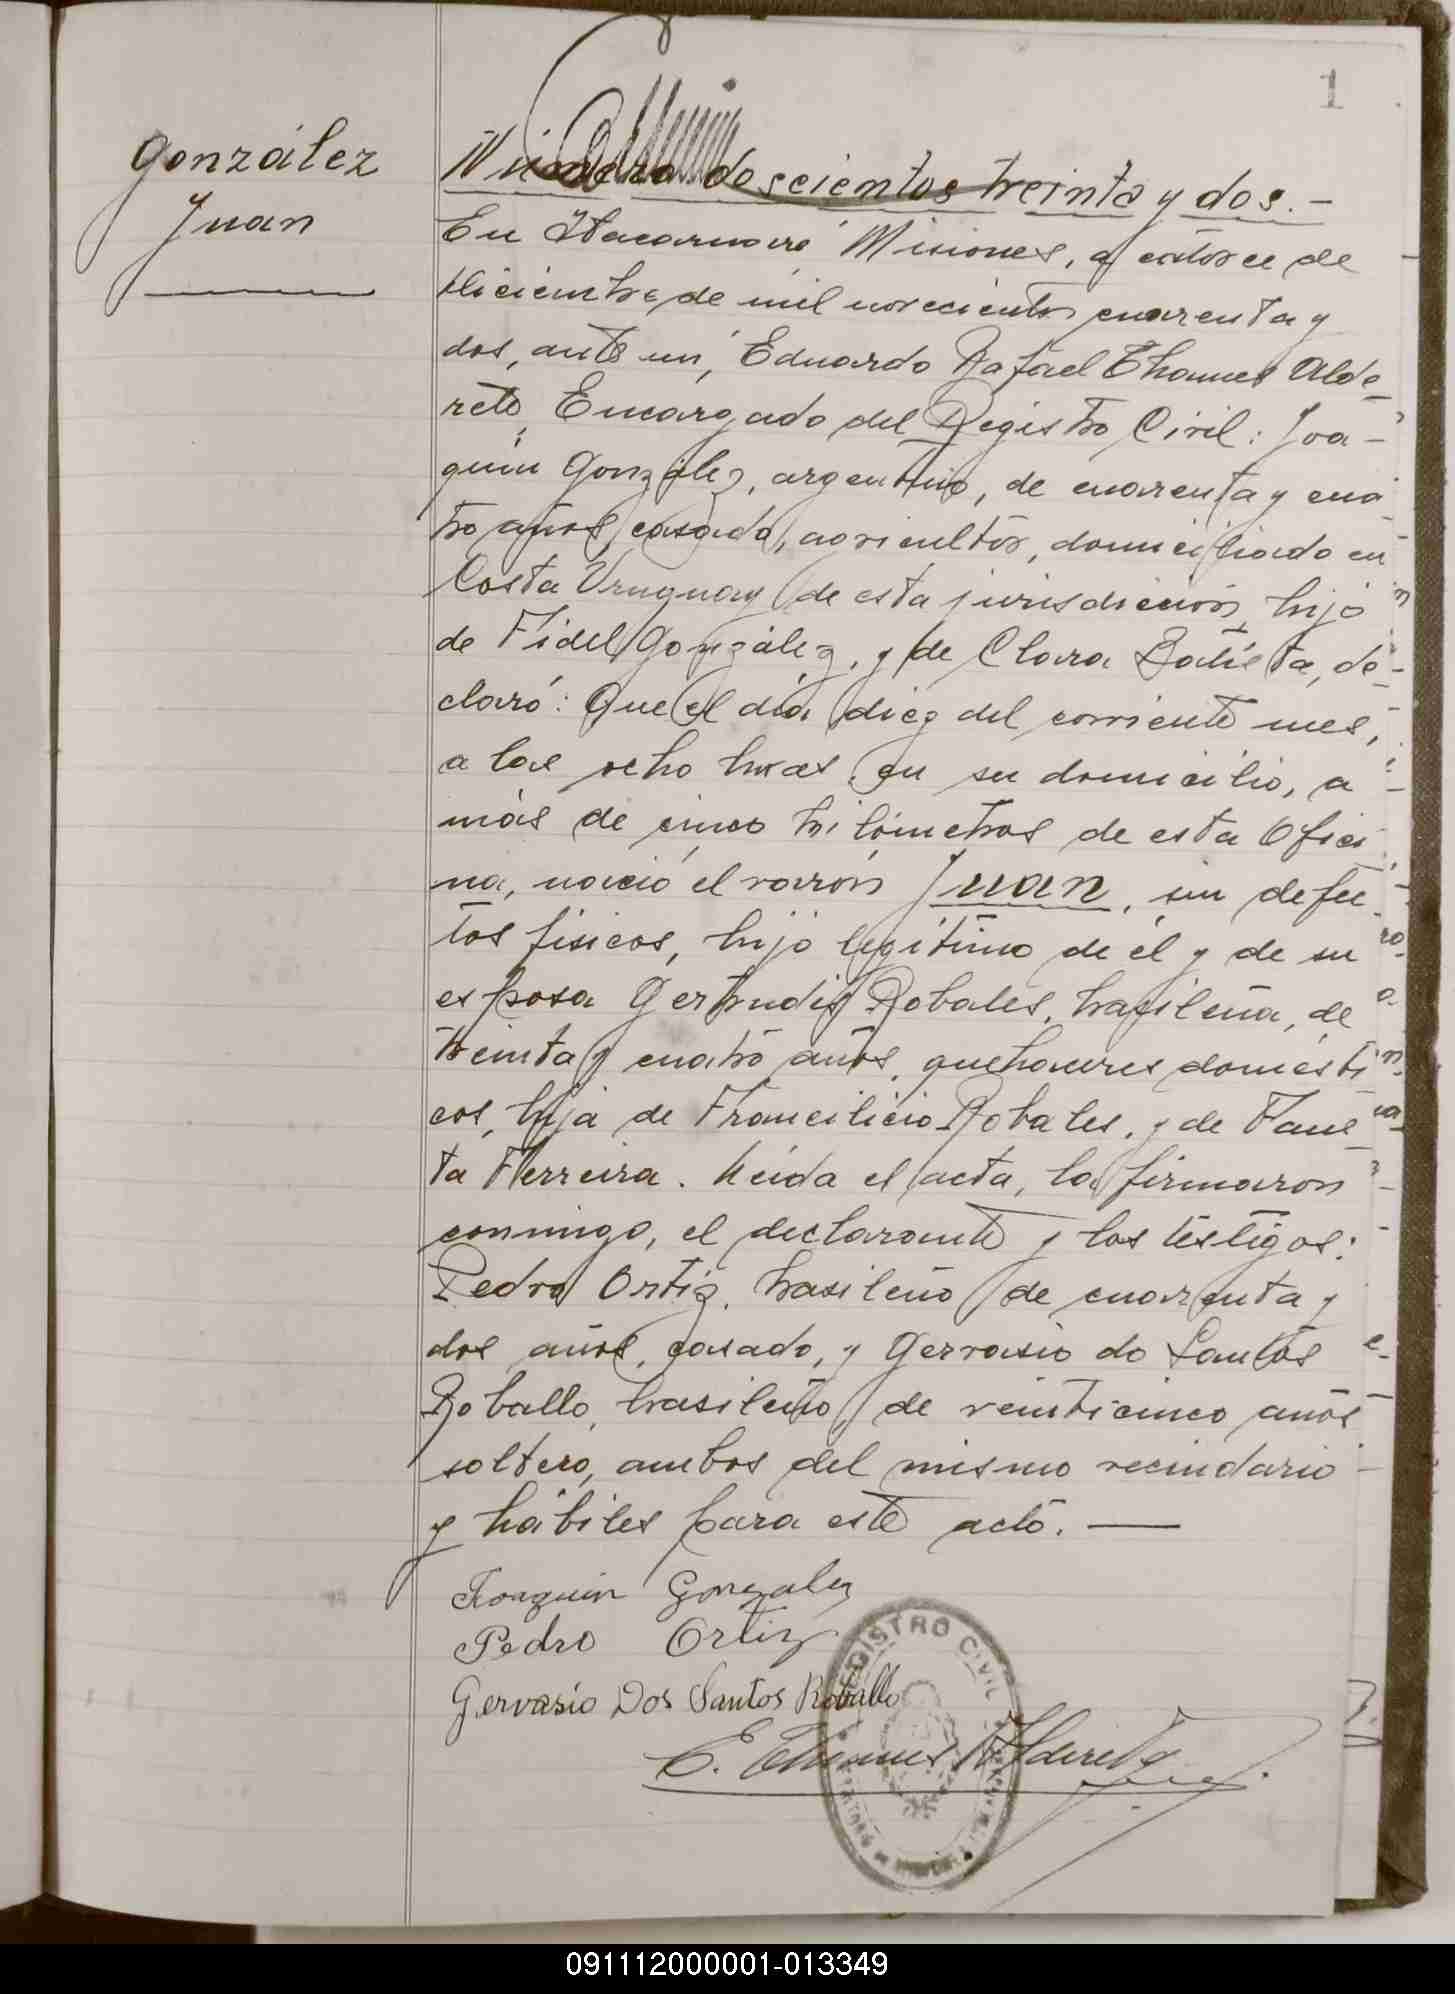 1
González
Juan
Número doscientos treinta y dos.-
En Itacaruaré Misiones, a catorce de
diciembre de mil novecientos cuarenta y
dos, ante mí, Eduardo Rafael Thames Alde-
rete, Encargado del Registro Civil: Joa-
quín González, argentino, de cuarenta y cua-
tro años, casado, agricultor, domiciliado en
Costa Uruguay de esta jurisdicción, hijo
de Fidel González, y de Clara Batista, de-
claró: Que el día diez del corriente mes,
a las ocho horas, en su domicilio, a
más de cinco kilómetros de esta Ofici
na, nació el varón Juan, sin defec-
tos físicos, hijo legítimo de él y de su
esposa Gertrudis Robales, brasileña, de
treinta y cuatro años, quehaceres domésti
cos, hija de Francilicio Robales, y de Faus
ta Ferreira. Leída el acta, la firmaron
conmigo, el declarante y los testigos:
Pedro Ortiz, brasileño de cuarenta y
dos años, casado, y Gervasio do Santos
Roballo, brasileño, de veinticinco años
soltero, ambos del mismo vecindario
y hábiles para este acto. —
Joaquin Gonzalez
Pedro Ortiz
Gervasio Dos Santos Roballo
E. Thames Alderete
REGISTRO CIVIL
091112000001-013349